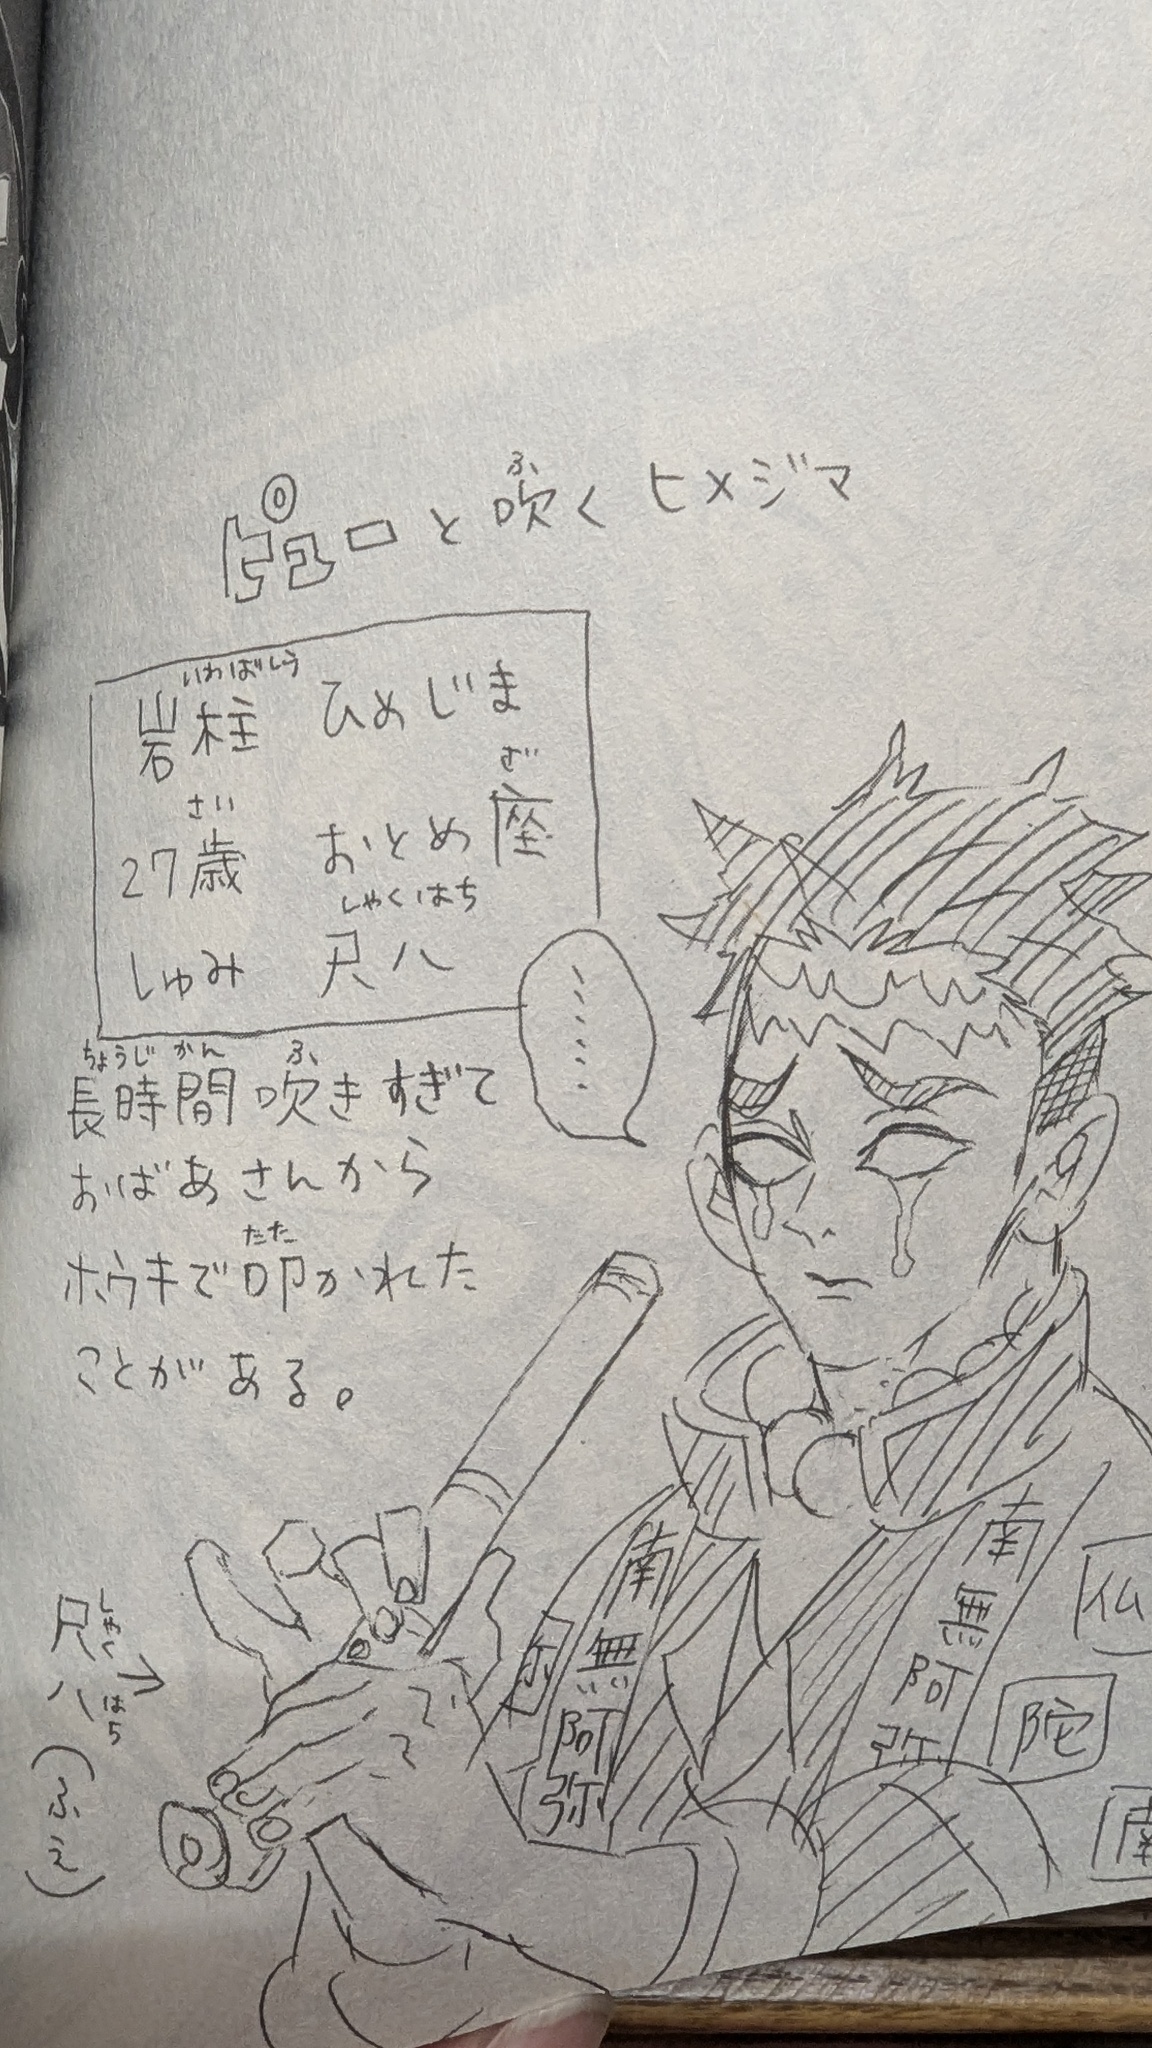 ピュ〜と吹くヒメジマ
ふ
岩柱 ひめじま
いわばしら
27歳 おとめ座
さい ざ
しゅみ 尺八
しゃくはち
、、、、、、
長時間吹きすぎて
ちょうじかん ふ
おばあさんから
ホウキで叩かれた
たた
ことがある。
尺八→
しゃくはち
(ふえ)
南無阿弥
弥
南無阿弥
仏
陀
南